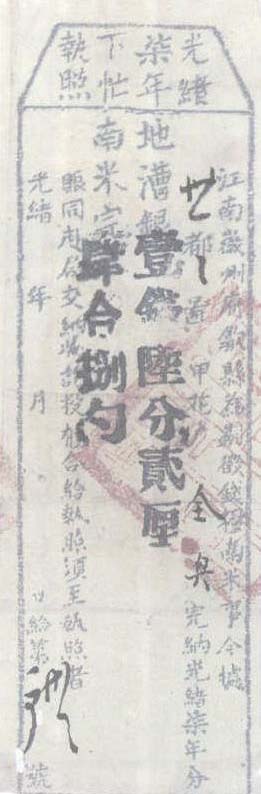 光緒
柒年
下忙
執照
江南徽州府歙縣為嚴徵錢糧萬米事今據
廿 都 啚 甲花戶 全興 完納光緒柒年分
地漕銀 壹錢陸分貳厘
南米 肆合捌勺
眼同赴局交納收訖投櫃合給執照須至執照者
光緒 年 月 日給第 號